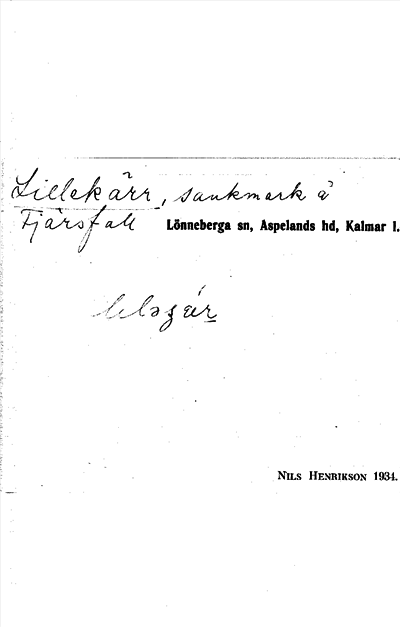 Lillekärr, sankmark å
Fjärsfall Lönneberga sn, Aspelands hd, Kalmar l.
NILS HENRIKSON 1934.